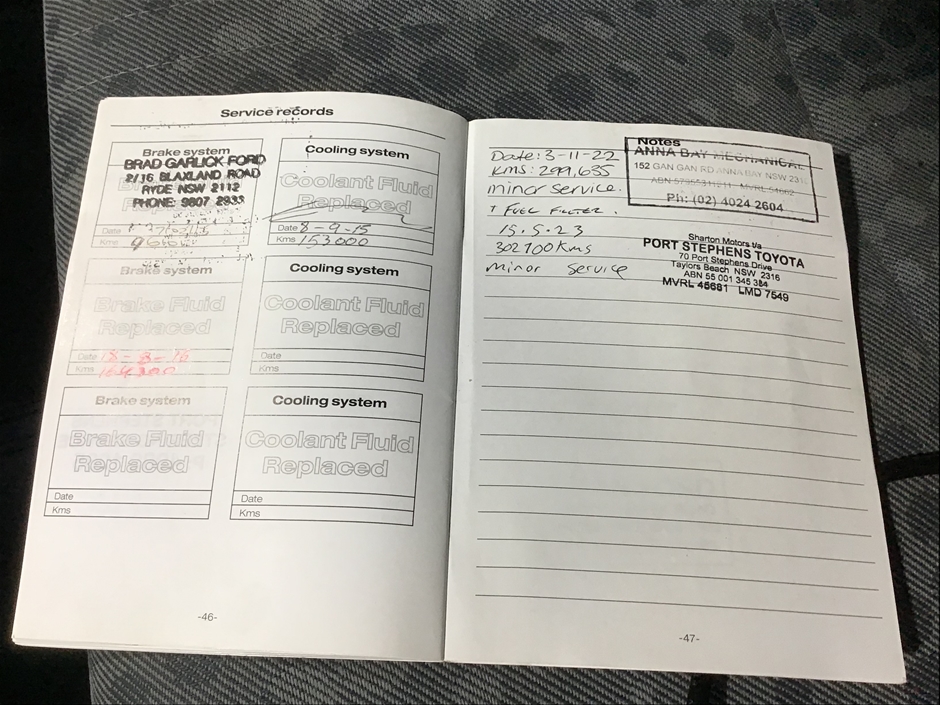 Service records
Brake system
BRAD GARLICK FORD
2/16 BLAXLAND ROAD
RYDE NSW 2112
PHONE: 9807 2333
Date
Kms
Cooling system
Coolant Fluid
Replaced
Date 8-9-15
Kms 153000
Brake system
Brake Fluid
Replaced
Date 18-8-16
Kms 164300
Cooling system
Coolant Fluid
Replaced
Date
Kms
Brake system
Brake Fluid
Replaced
Date
Kms
Cooling system
Coolant Fluid
Replaced
Date
Kms
-46-
Notes
ANNA BAY MECHANICAL
152 GAN GAN RD ANNA BAY NSW
Ph: (02) 4024 2604
Date: 3-11-22
Kms: 299,635
minor service.
+ FUEL FILTER.
15.5.23
302700Kms
minor service
Sharton Motors t/a
PORT STEPHENS TOYOTA
70 Port Stephens Drive
Taylors Beach NSW 2316
ABN 55 001 345 384
MVRL 45681 LMD 7549
-47-